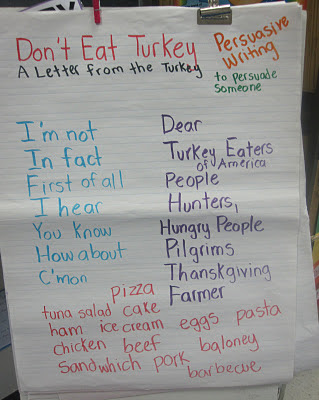 Don't Eat Turkey
A Letter from the Turkey
Persuasive
Writing
to persuade
someone
I'm not
In fact
First of all
I hear
You Know
How about
C'mon
Dear
Turkey Eaters
of America
People
Hunters,
Hungry People
Pilgrims
Thanskgiving
Farmer
pizza
tuna salad cake
ham ice cream eggs pasta
chicken beef baloney
sandwhich pork
barbecue